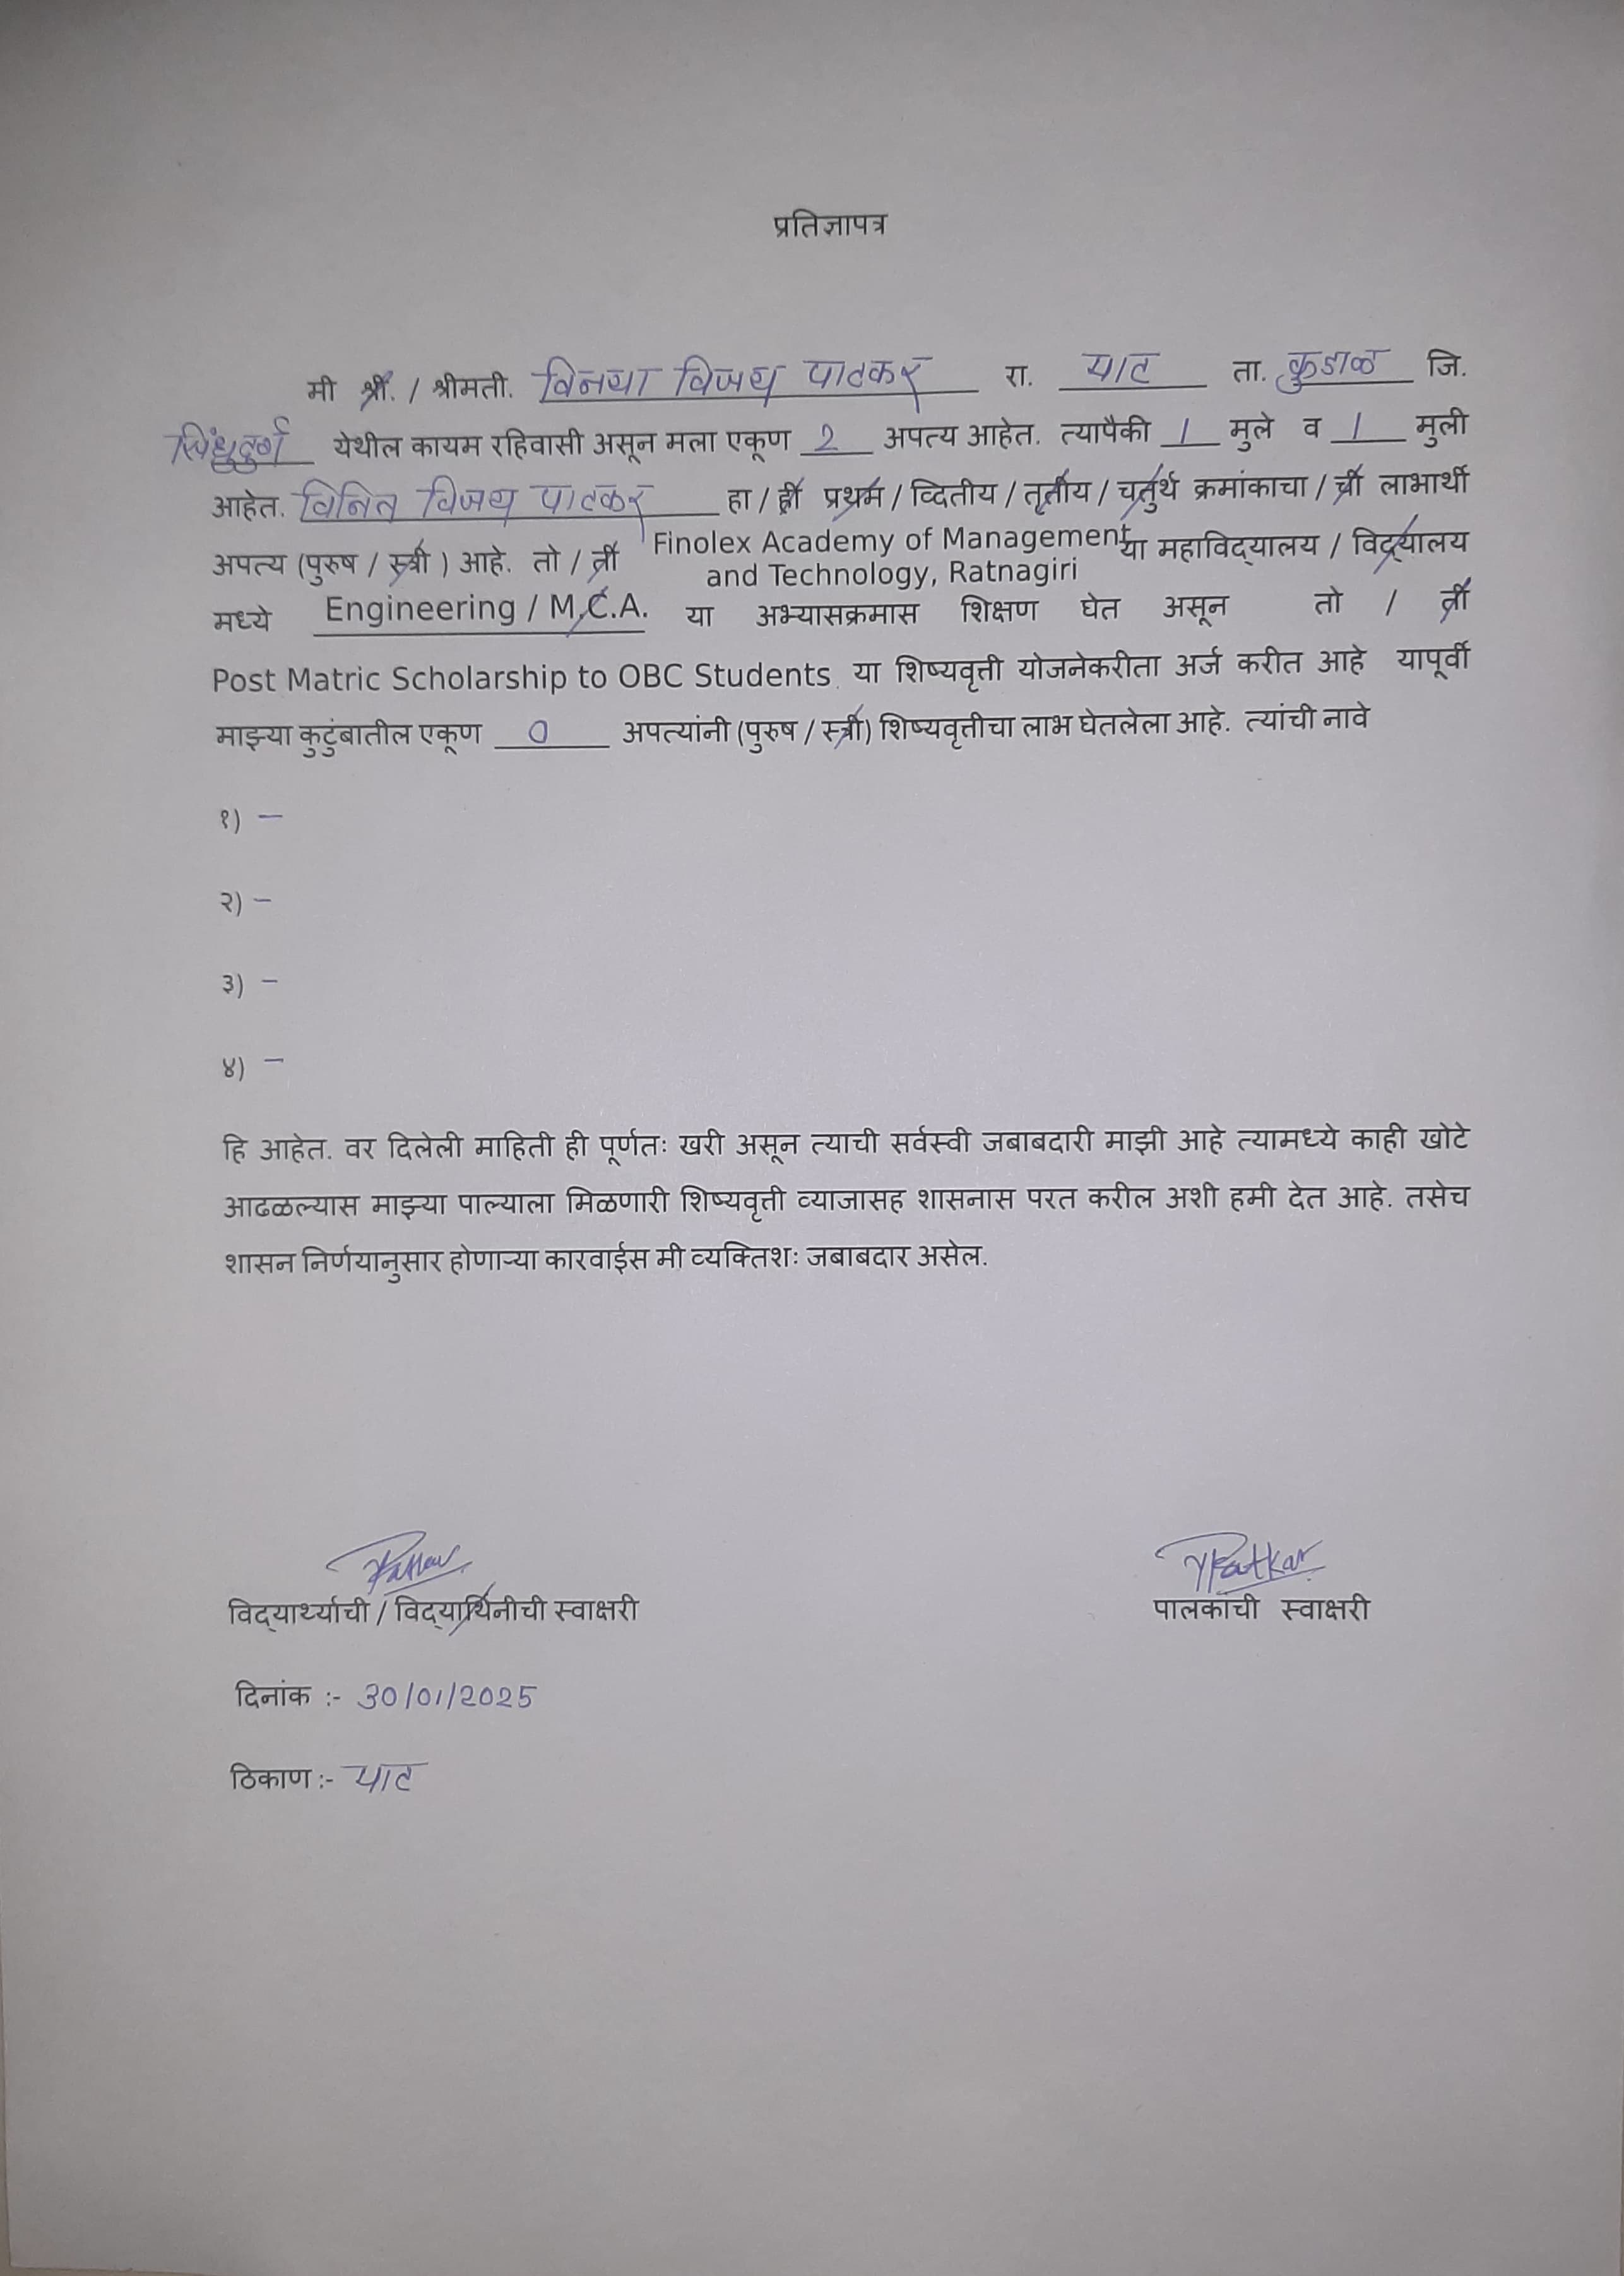 प्रतिज्ञापत्र
मी श्री. / श्रीमती. विनया विजय पाटकर रा. पाट ता. कुडाळ जि.
सिंधुदुर्ग येथील कायम रहिवासी असून मला एकूण 2 अपत्य आहेत. त्यापैकी 1 मुले व 1 मुली
आहेत. विनित विजय पाटकर हा / ही प्रथम / व्दितीय / तृतीय / चतुर्थ क्रमांकाचा / ची लाभार्थी
अपत्य (पुरुष / स्त्री ) आहे. तो / ती Finolex Academy of Management या महाविद्यालय / विद्यालय
and Technology, Ratnagiri
मध्ये Engineering / M.C.A. या अभ्यासक्रमास शिक्षण घेत असून तो / ती
Post Matric Scholarship to OBC Students. या शिष्यवृत्ती योजनेकरीता अर्ज करीत आहे यापूर्वी
माझ्या कुटुंबातील एकूण 0 अपत्यांनी (पुरुष / स्त्री) शिष्यवृत्तीचा लाभ घेतलेला आहे. त्यांची नावे
१) –
२) –
३) –
४) –
हि आहेत. वर दिलेली माहिती ही पूर्णतः खरी असून त्याची सर्वस्वी जबाबदारी माझी आहे त्यामध्ये काही खोटे
आढळल्यास माझ्या पाल्याला मिळणारी शिष्यवृत्ती व्याजासह शासनास परत करील अशी हमी देत आहे. तसेच
शासन निर्णयानुसार होणाऱ्या कारवाईस मी व्यक्तिशः जबाबदार असेल.
विद्यार्थ्याची / विद्यार्थिनीची स्वाक्षरी पालकाची स्वाक्षरी
दिनांक :- 30/01/2025
ठिकाण :- पाट